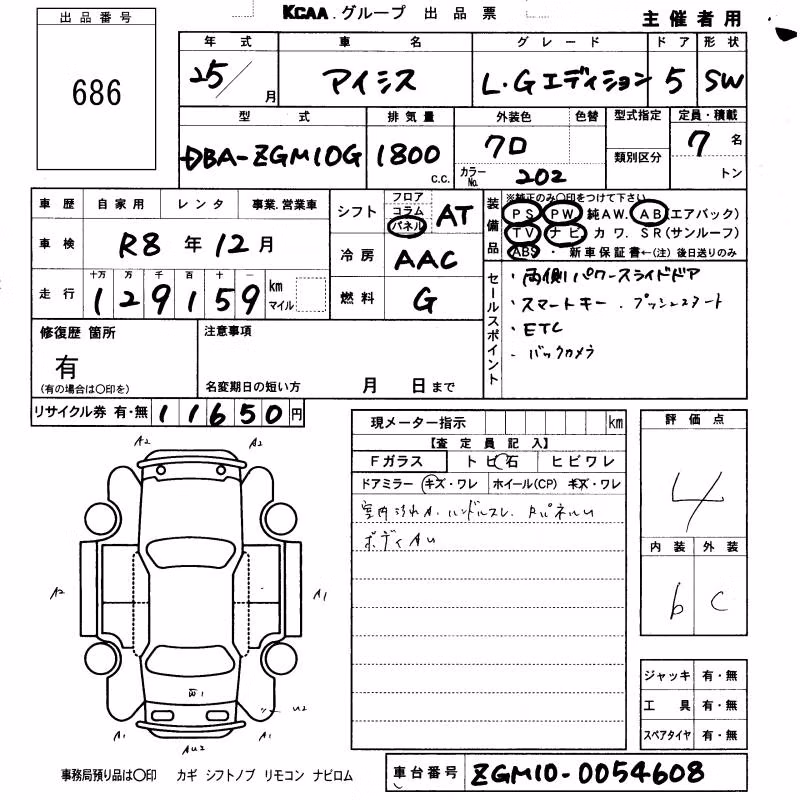 KCAA.グループ 出品票
主催者用
出品番号
686
年式 車名 グレード ドア 形状
25/ 月 アイシス L・Gエディション 5 SW
型式 排気量 外装色 色替 型式指定 定員・積載
DBA-ZGM10G 1800 c.c. クロ 類別区分 7 名
カラーNo. 202 トン
車歴 自家用 レンタ 事業.営業車
車検 R8年12月
走行 十万 万 千 百 十 一
129159 km マイル
シフト フロア コラム パネル AT
冷房 AAC
燃料 G
装備品
※純正のみ○印をつけて下さい
PS PW 純AW. AB(エアバック)
TV ナビ カワ. SR(サンルーフ)
ABS・ 新車保証書←(注)後日送りのみ
セールスポイント
・両側パワースライドドア
・スマートキー . プッシュスタート
・ETC
・バックカメラ
修復歴 箇所
有
(有の場合は○印を)
注意事項
名変期日の短い方 月 日まで
リサイクル券 有・無 11650円
現メーター指示 km
【査定員記入】
Fガラス トビ石 ヒビワレ
ドアミラー キズ・ワレ ホイール(CP) キズ・ワレ
室内汚れA. ハンドルスレ. Rパネルu
ボディAu
評価点
4
内装 外装
b C
A2 A2
A2 A1
面1
u2
A1 Au2 A1
ジャッキ 有・無
工具 有・無
スペアタイヤ 有・無
事務局預り品は○印 カギ シフトノブ リモコン ナビロム
車台番号 ZGM10-0054608